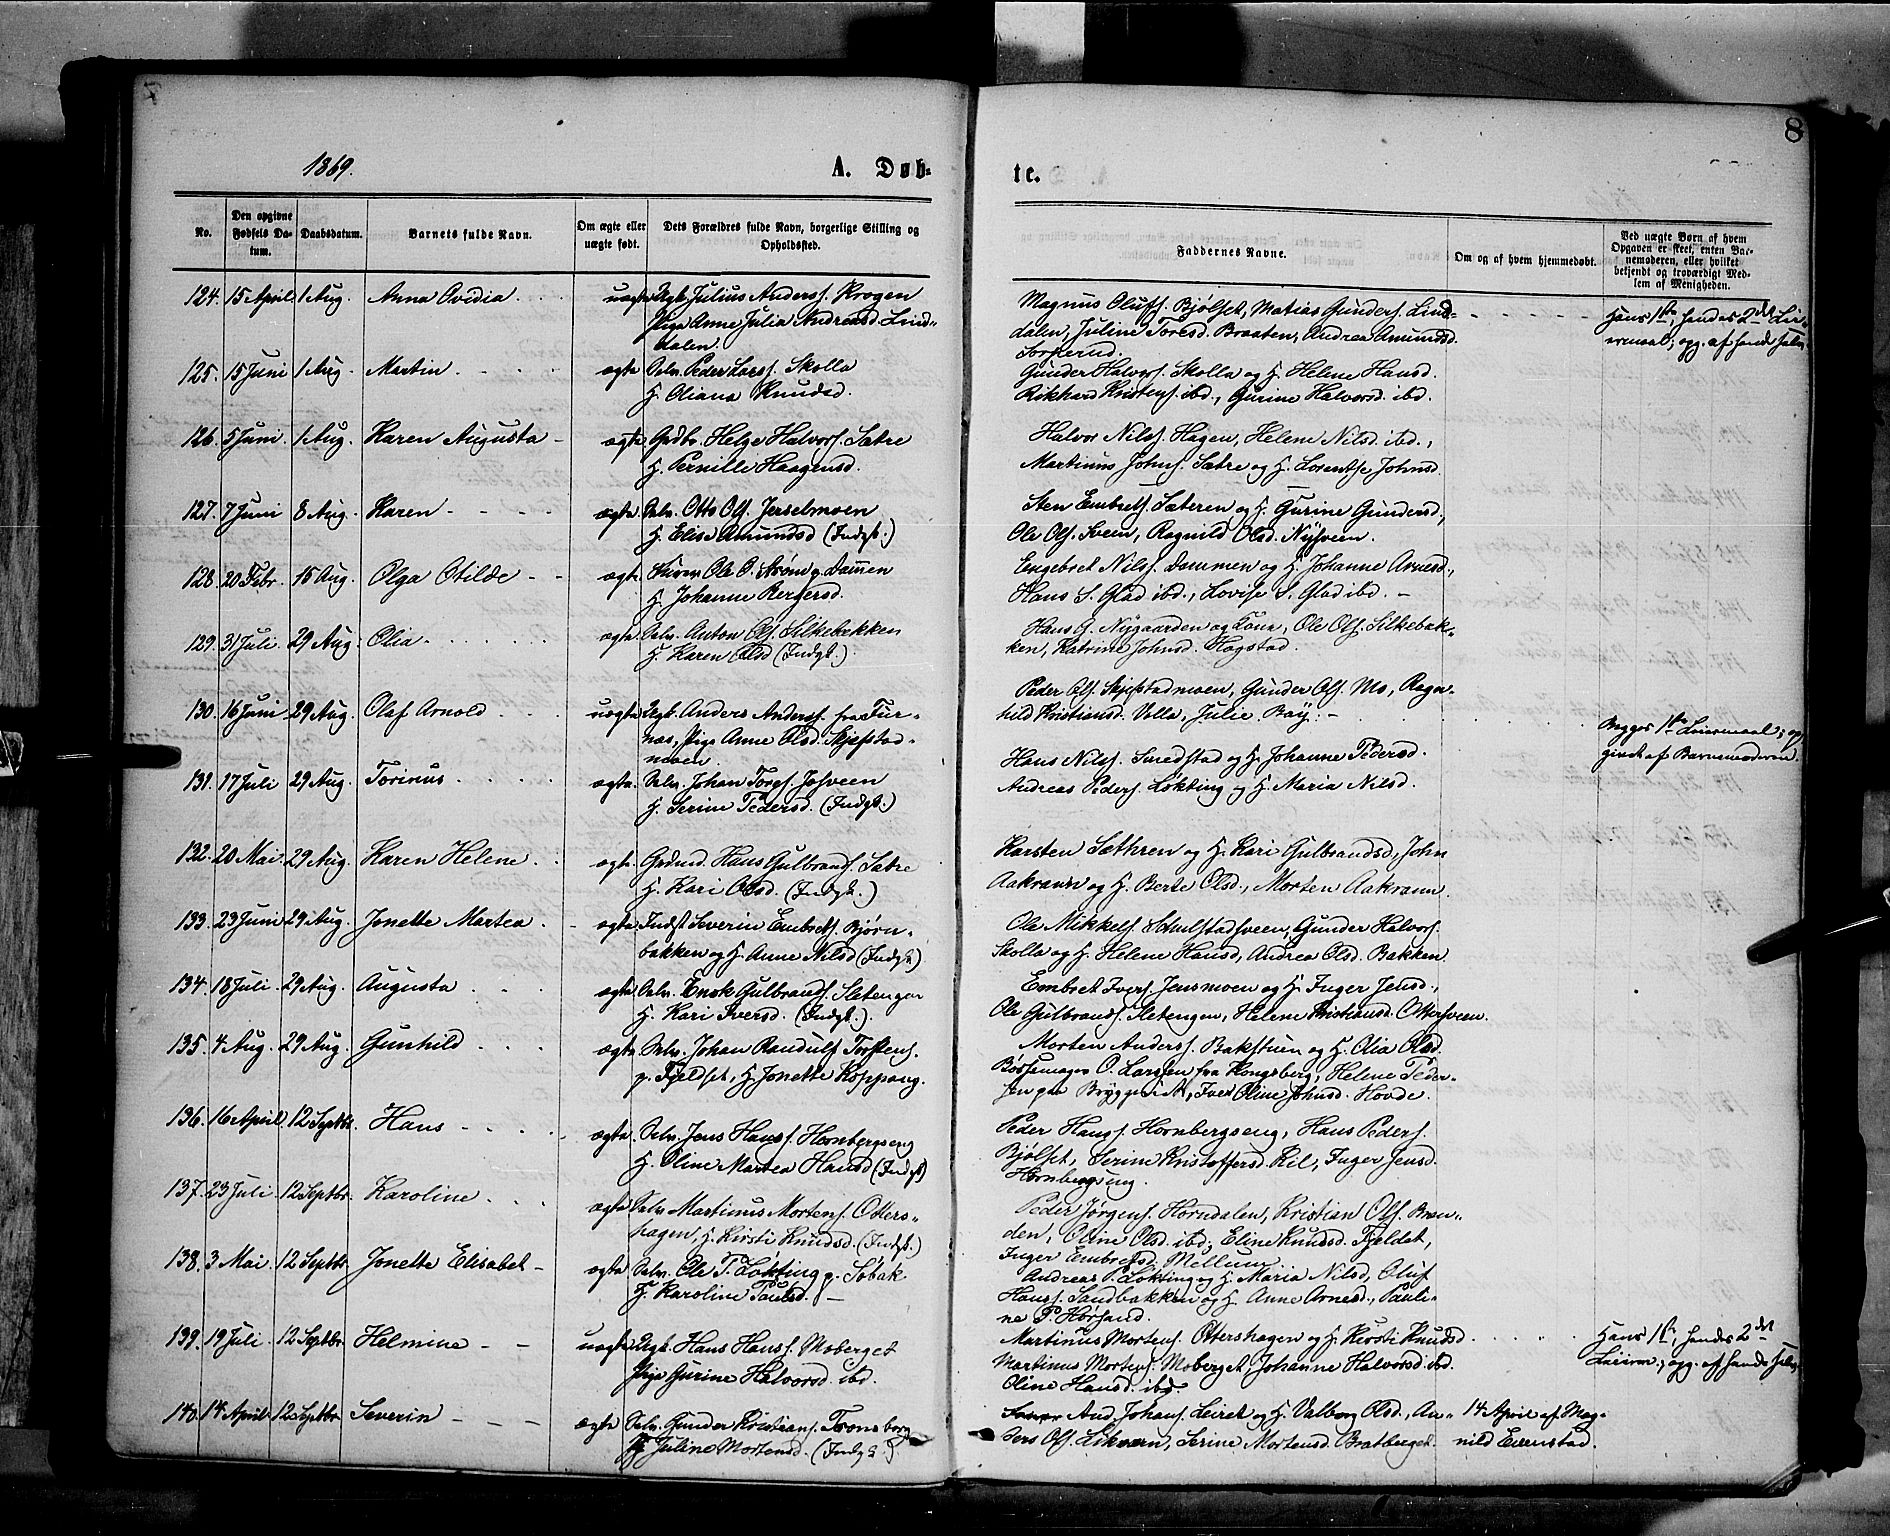 8
1869.
A. Døb-
te.
No.
Den opgivne Fødsels Da-tum.
Daabsdatum.
Barnets fulde Navn.
Om ægte eller uægte født.
Dets Forældres fulde Navn, borgerlige Stilling og Opholdssted.
Faddernes Navne.
Om og af hvem hjemmedøbt.
Ved uægte Børn af hvem Opgaven er skeet, enten Bar-nemoderen, eller hvilket bekjendt og troværdigt Med-lem af Menigheden.
124. 15 April 1 Aug. Anna Ovidia uægte Ugk. Julius Anderss. Krogen
Pige Anne Julia Andreasd. Lind-
dalen.
Magnus Olufs. Bjølset, Matias Gunders. Lind-
dalen, Juline Toresd. Braaten, Andrea Amundsd.
Sorperud.
Hans 1ste, hendes 2det Lei-
ermaal; opg. af hende selv.
125. 15 Juni 1 Aug. Martin ægte Selv. Peder Larss. Skolla
H. Oliana Knudsd.
Gunder Halvors. Skolla og H. Helene Hansd.
Rikhard Kristens. ibd., Gurine Halvorsd. ibd.
126. 5 Juni 1 Aug. Karen Augusta ægte Grdbr. Helge Halvors. Sætre
H. Pernille Haagensd.
Halvor Nilss. Hagen, Helene Nilsd. ibd.,
Martinus Johns. Sætre og H. Lorentse Johnsd.
127. 7 Juni 8 Aug. Karen ægte Selv. Otto Ols. Jerselmoen
H. Elise Amundsd (Indgt.)
Sten Embrets. Sæteren og H. Gurine Gundersd.,
Ole Ols. Sveen, Ragnild Olsd. Nysveen.
128. 20 Febr. 15 Aug. Olga Otilde ægte Ole O. Strøm p. Dammen
H. Johanne Bergersd.
Engebret Nilss. Dammen og H. Johanne Arnesd.,
Hans S. Glad ibd., Lovise S. Glad ibd.
129. 31 Juli 29 Aug. Olia ægte Selv. Anton Ols. Silkebækken
H. Karen Olsd (Indgt.)
Hans G. Nygaarden og Kone, Ole Ols. Silkebæk-
ken, Katrine Johnsd. Hagstad.
130. 16 Juni 29 Aug. Olaf Arnold uægte Ugk. Anders Anderss. fra Fur-
næs, Pige Anne Olsd. Skjefstad-
moen.
Peder Ols. Skjefstadmoen, Gunder Ols. Mo, Ragn-
hild Kristiansd. Volla, Julie Bay.
Begges 1ste Leiermaal; op-
givet af Barnemoderen.
131. 17 Juli 29 Aug. Torinus ægte Selv. Johan Tores. Josveen
H. Serine Pedersd. (Indgt.)
Hans Nilss. Smedstad og H. Johanne Pedersd.
Andreas Peders. Løkting og H. Maria Nilsd.
132. 20 Mai 29 Aug. Karen Helene ægte Grdmd. Hans Gulbrands. Sætre
H. Kari Olsd. (Indgt.)
Karsten Sæthren og H. Kari Gulbrandsd, John
Aakrann og H. Berte Olsd., Morten Aakrann.
133. 23 Juni 29 Aug. Jonette Martea ægte Indst Severin Embrets. Bjørn-
bakken og H. Anne Nilsd (Indgt.)
Ole Mikkels Schulstadsveen, Gunder Halvors.
Skolla og H. Helene Hansd, Andrea Olsd. Bakken.
134. 18 Juli 29 Aug. Augusta ægte Selv. Enok Gulbrands. Sletengen
H. Kari Iversd. (Indgt.)
Embret Ivers. Jensmoen og H. Inger Jensd.,
Ole Gulbrands. Sletengen, Helene Kristiansd. Ottersveen.
135. 4 Aug. 29 Aug. Gunhild ægte Selv. Johan Randulf Torstens.
p. Fjeldset, H. Jonette Koppang.
Morten Anderss. Bakstuen og H. Olia Olsd.
Bøssemager O. Larssen fra Kongsberg, Helene Peder-
sen paa, Iver Oline Johnsd. Hovde.
136. 16 April 12 Septbr. Hans ægte Selv. Jens Hanss. Hornbergseng
H. Oline Martea Hansd (Indgt)
Peder Hanss. Hornbergseng, Hans Peders.
Bjølset, Serine Kristoffersd. Kil, Inger Jensd.
Hornbergseng.
137. 23 Juli 12 Septbr. Karoline ægte Selv Martinus Mortens. Otters-
hagen, H. Kirsti Knudsd. (Indgt.)
Peder Jørgens. Horndalen, Kristian Ols. Bræn-
den, Oline Olsd. ibd; Eline Knudsd. Fjeldet,
Inger Embretsd. Mellum.
138. 3 Mai 12 Septbr. Jonette Elisabet ægte Selv. Ole P. Løkting p. Søbak
H. Karoline Paulsd.
Andreas P. Løkting og H. Maria Nilsd, Oluf
Hanss. Sandbakken og H. Anne Arnesd., Pauli-
ne P. Hørsand.
139. 19 Juli 12 Septbr Helmine uægte Ugk. Hans Hanss. Moberget
Pige Gurine Halvorsd. ibd.
Martinus Mortens. Ottershagen og H. Kirsti Knudsd.
Martinus Mortens. Moberget, Johanne Halvorsd. ibd.
Oline Hansd. ibd.
Hans 1ste, hendes 2det
Leierm.; opg. af hende selv.
140. 14 April 12 Septbr Severin ægte Selv. Gunder Kristians. Tronsberg
H. Juline Mortensd. (Indgt.)
And. Johans. Leiret og H. Valborg Olsd., An-
ders Ols. Likværn, Serine Mortensd. Bratberget.
14 April af Mag-
nild Evenstad.